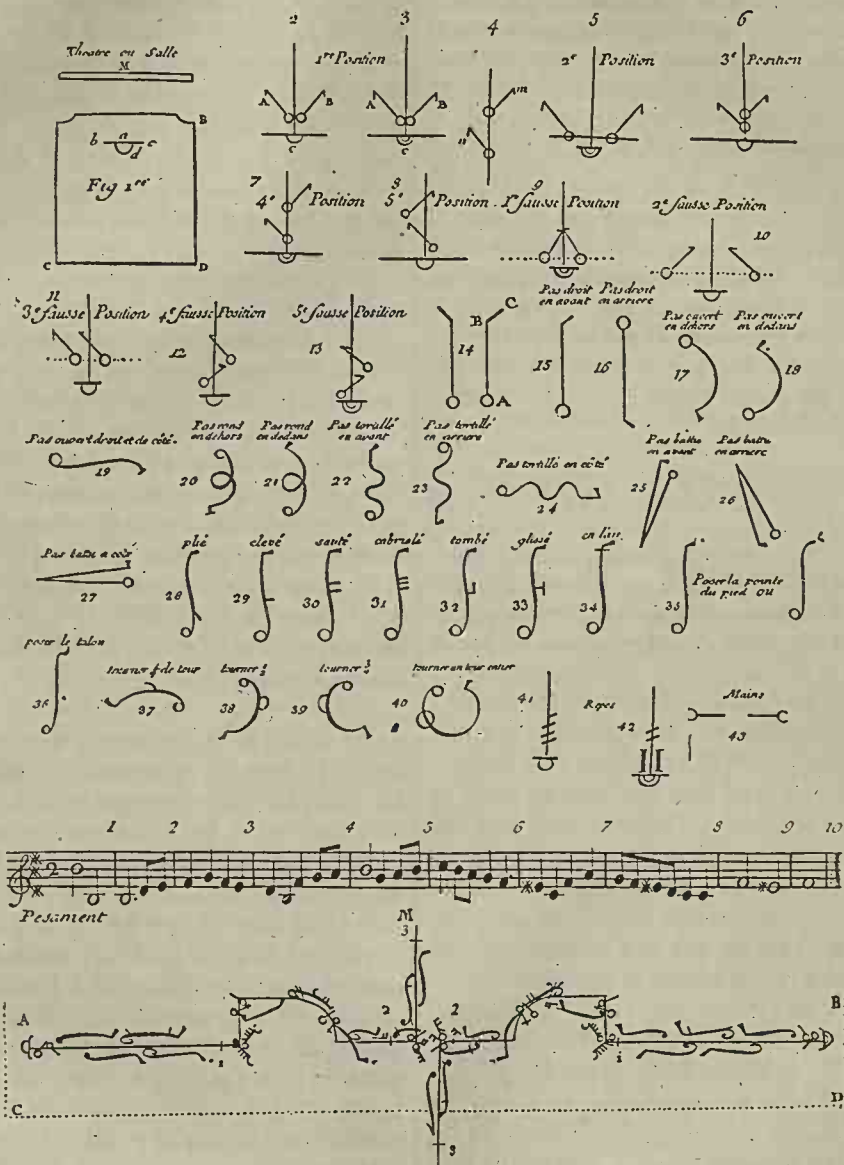 2 3 4 5 6
Theatre ou Salle
M
1re Position 2e Position 3e Position
A B A B m n
c c
B
a
b c
d
Fig 1ere
C D
7 8 9 10
4e Position 5e Position 1re fausse Position 2e fausse Position
11 12 13 14 15 16 17 18
3e fausse Position 4e fausse Position 5e fausse Position
B C A
Pas droit en avant
Pas droit en arriere
Pas ouvert en dehors
Pas ouvert en dedans
Pas ouvert droit et de côté.
19
Pas rond en dehors
20
Pas rond en dedans
21
Pas tortillé en avant
22
Pas tortillé en arriere
23
Pas tortillé en côté
24
Pas battu en avant
25
Pas battu en arriere
26
Pas battu a coté
27
plié elevé sauté cabriolé tombé glissé en l'air
28 29 30 31 32 33 34 35
Poser la pointe
du pied ou
poser le talon
36
tourner ¼ de tour
37
tourner ½
38
tourner ¾
39
tourner un tour entier
40
41 Reges 42
Mains
43
1 2 3 4 5 6 7 8 9 10
2
Pesament
M
3
A B
2 2
1 1
C D
3